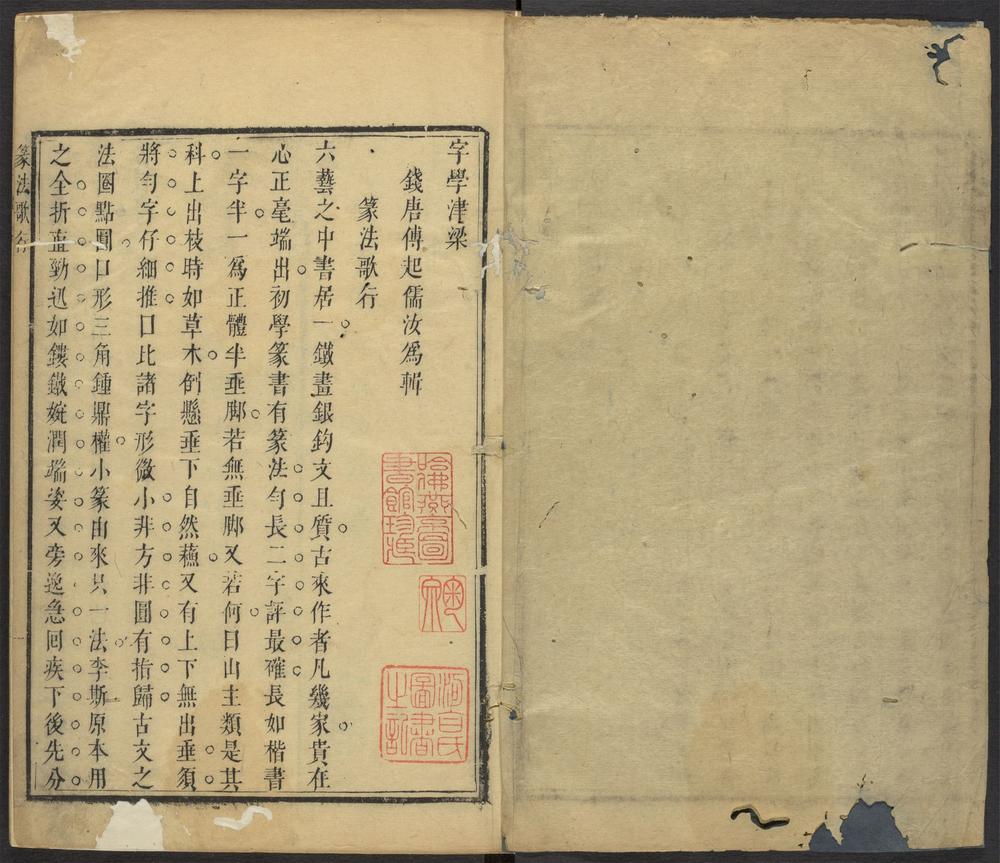 字學津梁
錢唐傅起儒汝爲輯
篆法歌行
六藝之中書居一鐵畫銀鈎文且質古來作者凡幾家貴在
心正毫端出初學篆書有篆法勻長二字評最確長如楷書
一字半一爲正體半垂脚若無垂脚又若何日山主類是其
科上出枝時如草木倒懸垂下自然蘓又有上下無出垂須
將勻字仔細推口比諸字形微小非方非圓有指歸古文之
法圈點圓口形三角鍾鼎權小篆由來只一法李斯原本用
之全折直勁迅如鏤鐵婉潤端姿又旁逸急回疾下後先分
篆法歌行